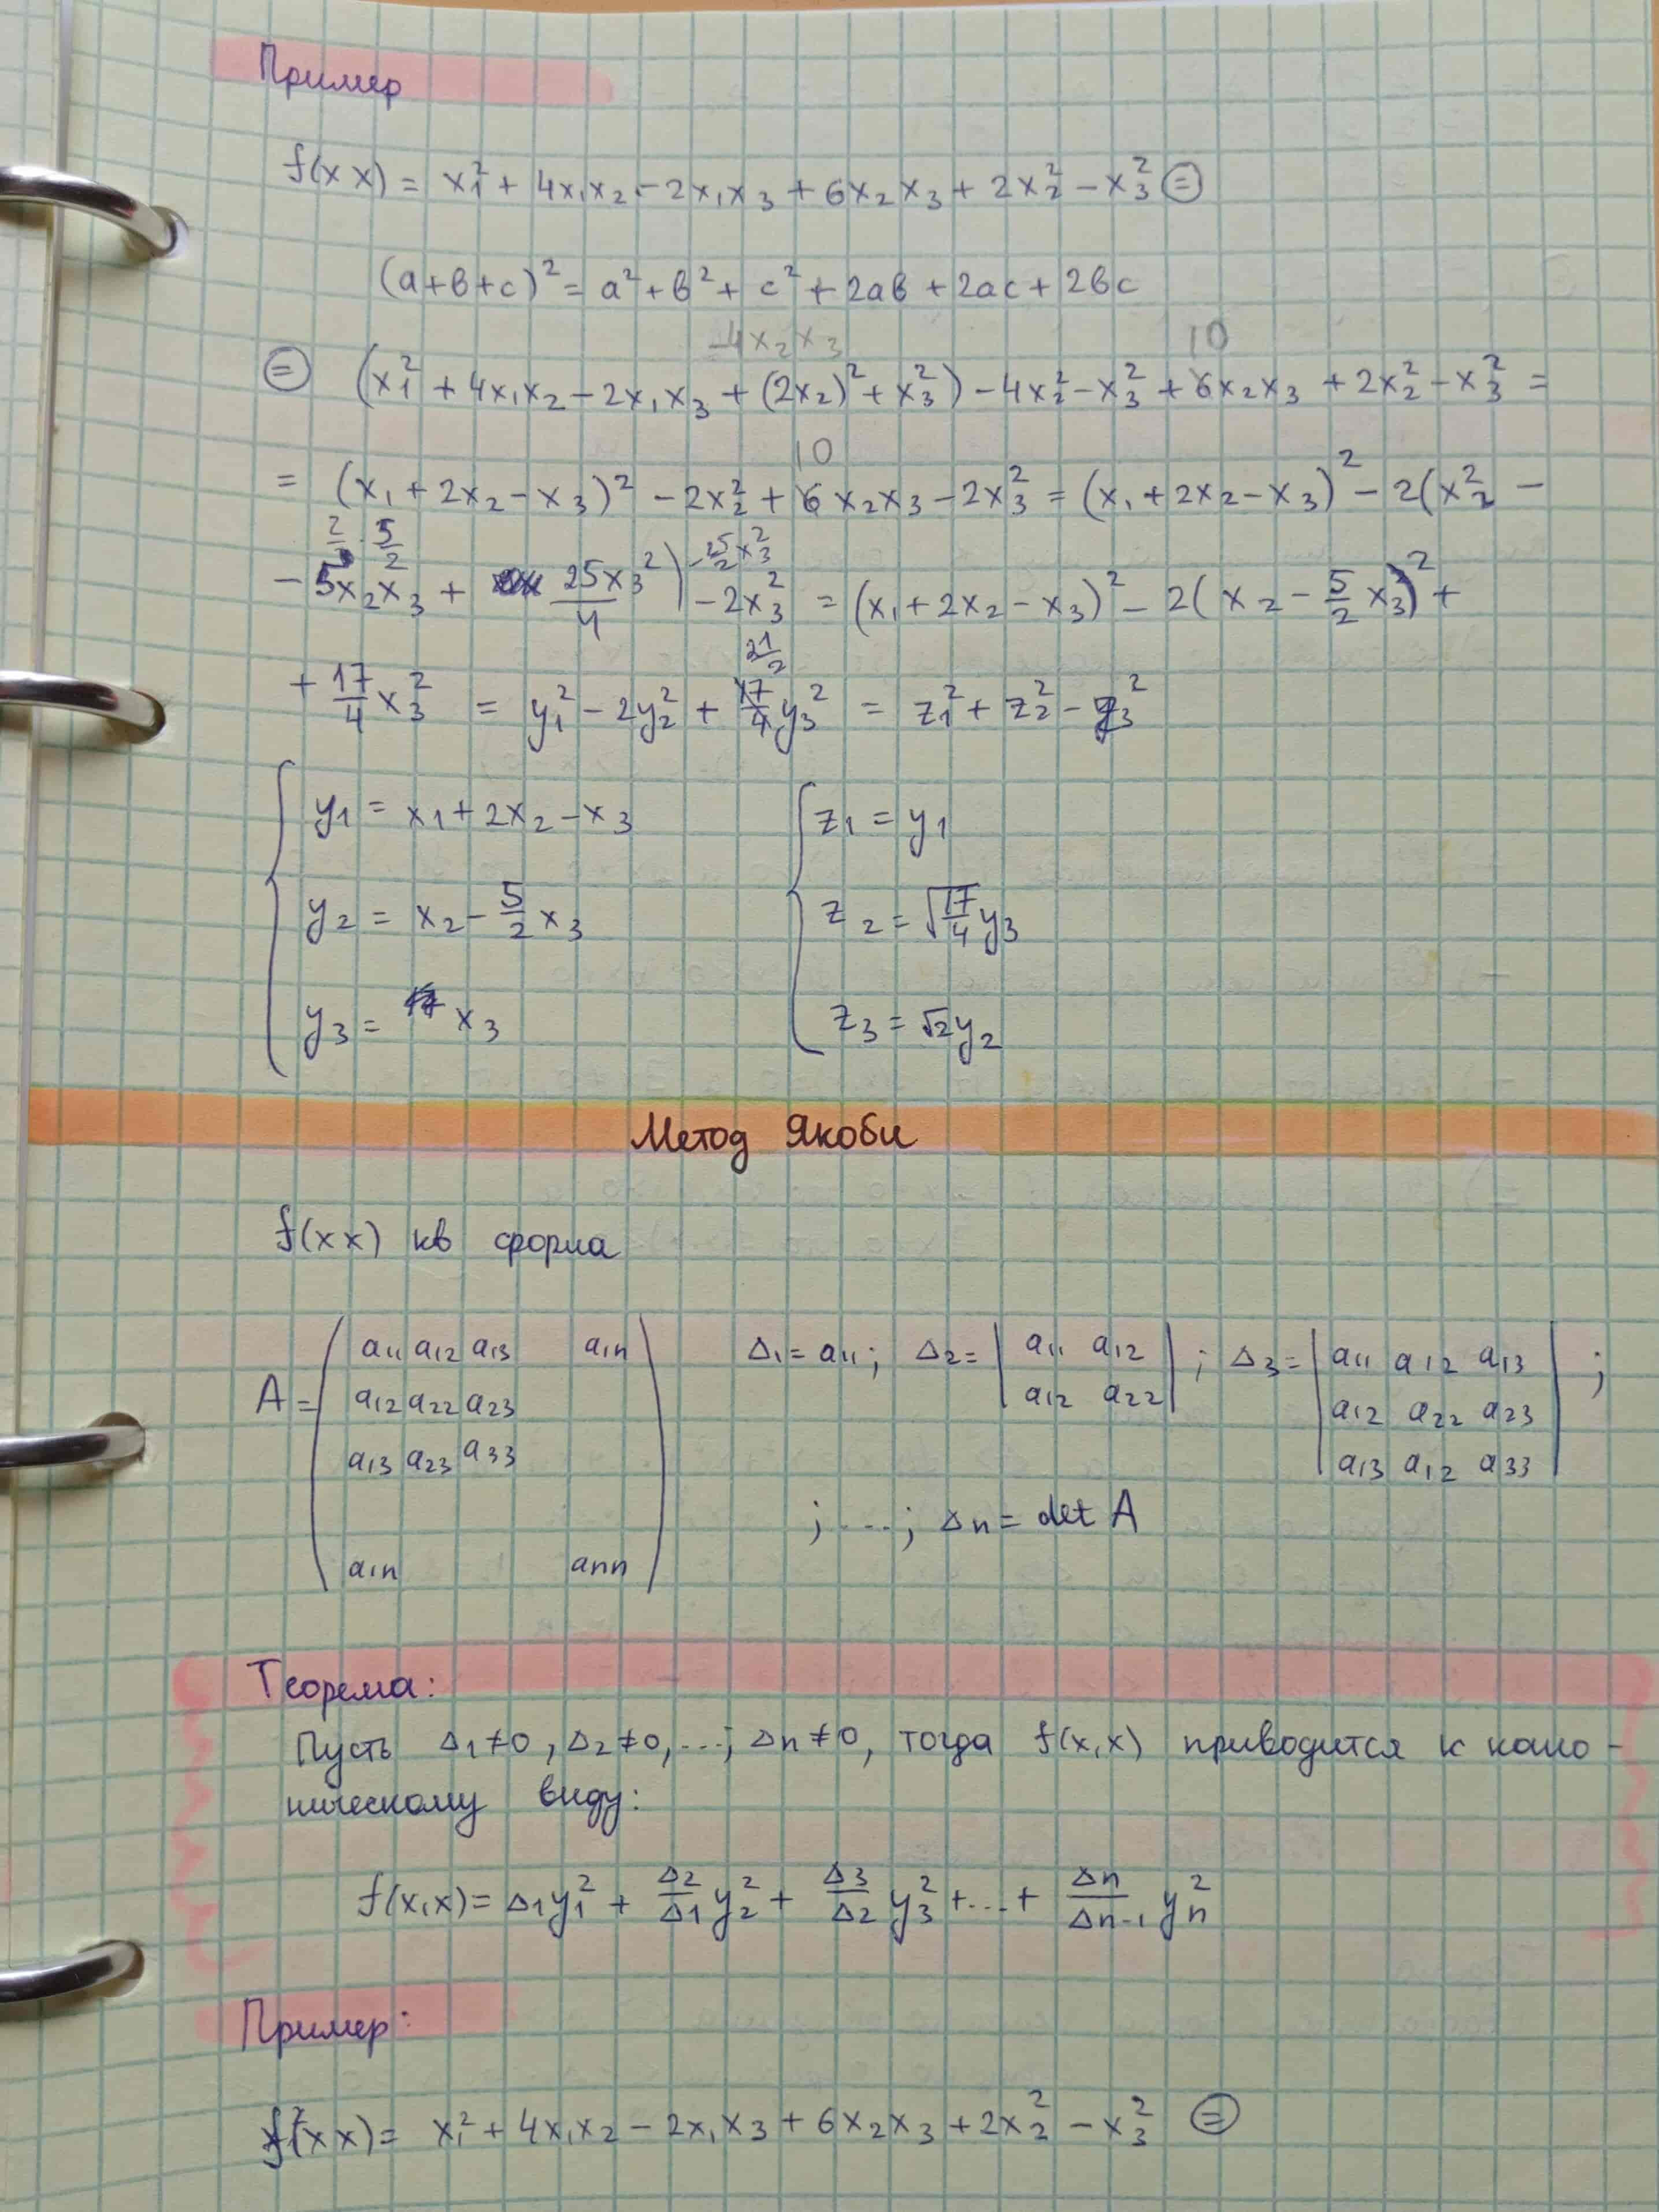 Пример
f(x x) = x₁² + 4x₁x₂ - 2x₁x₃ + 6x₂x₃ + 2x₂² - x₃² ⊜
(a+b+c)² = a² + b² + c² + 2ab + 2ac + 2bc
-4x₂x₃ 10
⊜ (x₁² + 4x₁x₂ - 2x₁x₃ + (2x₂)² + x₃²) - 4x₂² - x₃² + 6x₂x₃ + 2x₂² - x₃² =
10
= (x₁ + 2x₂ - x₃)² - 2x₂² + 6x₂x₃ - 2x₃² = (x₁ + 2x₂ - x₃)² - 2(x₂² -
2/2 · 5/2 -25/2 x₃²
- 5x₂x₃ + 25x₃²/4) - 2x₃² = (x₁ + 2x₂ - x₃)² - 2(x₂ - 5/2 x₃)² +
21/2
+ 17/4 x₃² = y₁² - 2y₂² + 17/4 y₃² = z₁² + z₂² - z₃²
y₁ = x₁ + 2x₂ - x₃ z₁ = y₁
y₂ = x₂ - 5/2 x₃ z₂ = √17/4 y₃
y₃ = x₃ z₃ = √2 y₂
Метод Якоби
f(x x) кв форма
A = (a₁₁ a₁₂ a₁₃ a₁ₙ Δ₁ = a₁₁; Δ₂ = |a₁₁ a₁₂|; Δ₃ = |a₁₁ a₁₂ a₁₃|;
a₁₂ a₂₂ a₂₃ a₁₂ a₂₂ a₁₂ a₂₂ a₂₃
a₁₃ a₂₃ a₃₃ a₁₃ a₁₂ a₃₃
; ...; Δn = det A
a₁ₙ aₙₙ)
Теорема:
Пусть Δ₁≠0, Δ₂≠0, ...; Δn≠0, тогда f(x,x) приводится к кано-
ническому виду:
f(x,x) = Δ₁y₁² + Δ₂/Δ₁ y₂² + Δ₃/Δ₂ y₃² + ... + Δn/Δn-1 yₙ²
Пример:
f(x x) = x₁² + 4x₁x₂ - 2x₁x₃ + 6x₂x₃ + 2x₂² - x₃² ⊜